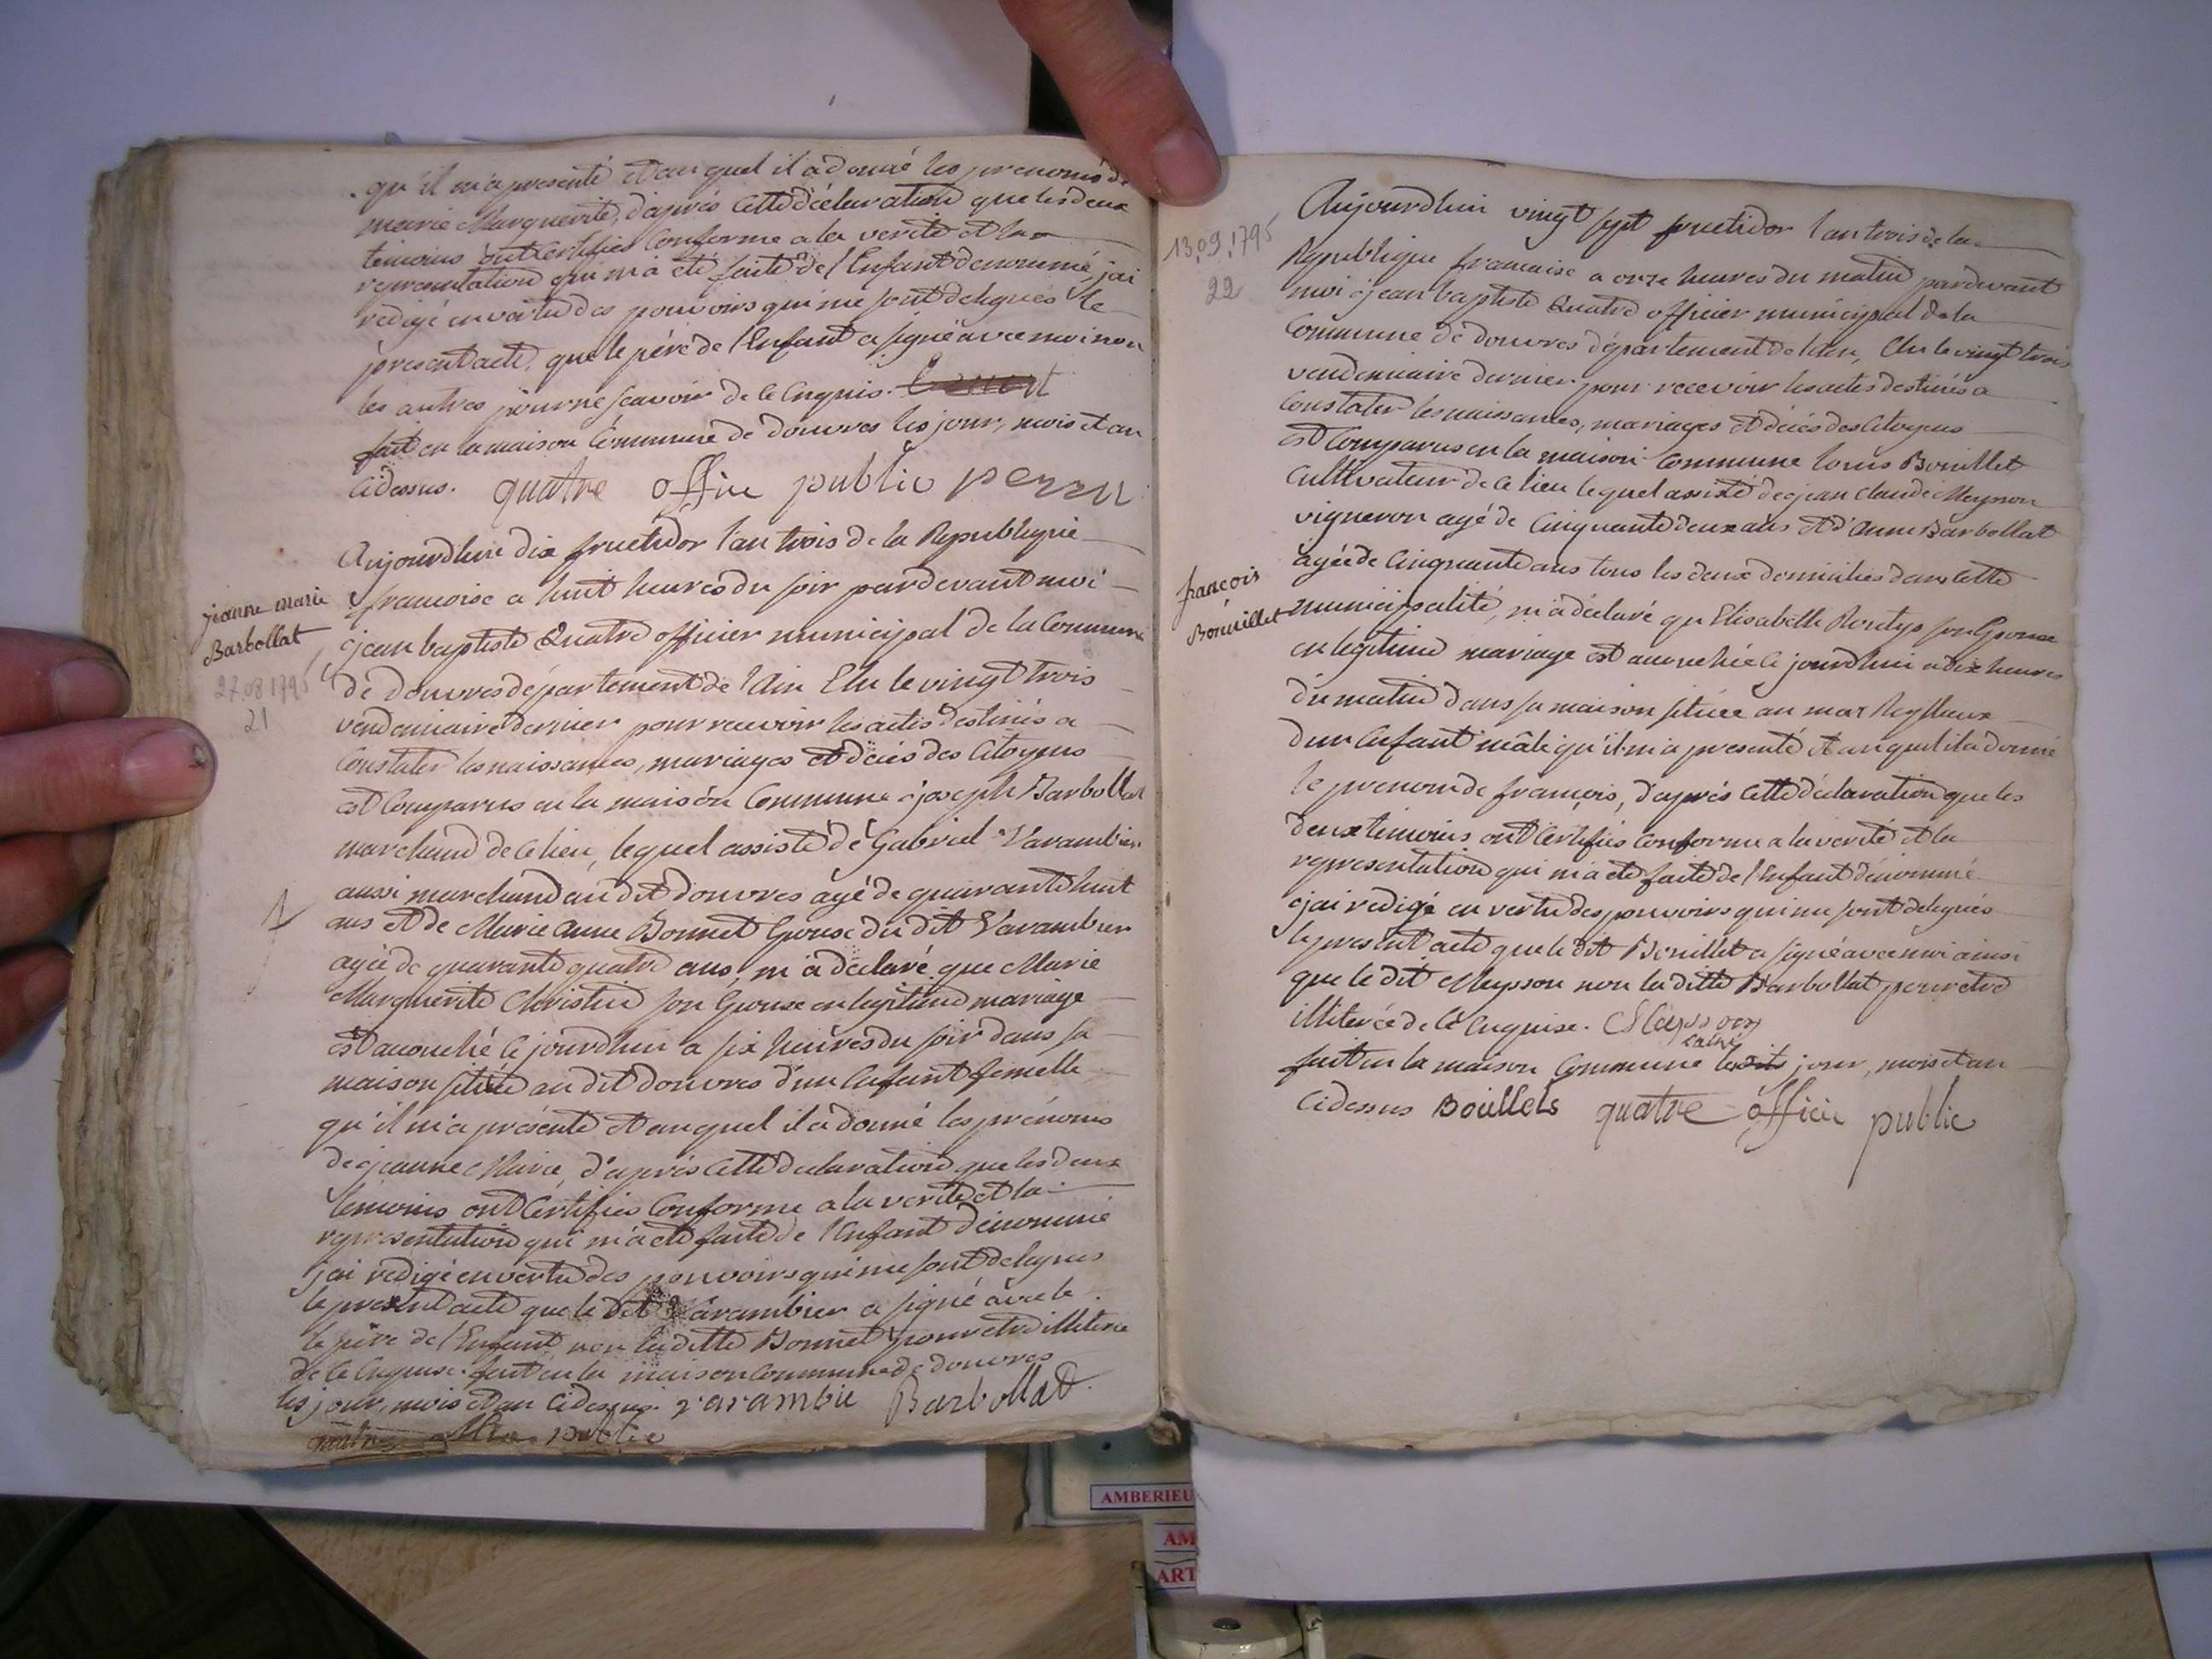 qu'il m'a presenté et auquel il a donné les prenoms de
marie Marguerite, d'aprés cette déclaration que les deux
temoins ont certifiés conforme a la verité et la
representation qui m'a été faite de l'Enfant denommé, jai
redigé en vertu des pouvoirs qui me sont delegués le
present acte, que le pére de l'Enfant a signé avec moi non
les autres pour ne scavoir de ce Enquis.
fait en la maison Commune de douvres les jour, mois et an
cidessus. quatre offiu public perru
Aujourdhui dix fructidor l'an trois de la Republique
francoise a huit heures du soir pardevant moi
jeanne marie
Barbollat
27.08.1795
21
jean baptiste Quatre officier municipal de la Commune
de douvres département de l'Ain Elu le vingt trois
vendemiaire dernier pour recevoir les actes destinés a
Constater les naissances, mariages et décés des Citoyens
est Comparus en la maison Commune joseph Barbollat
marchand de ce lieu, lequel assisté de Gabriel Varambier
aussi marchand au dit douvres agé de quarante huit
ans et de Marie anne Bonnet Epouse du dit Varambier
agée de quarante quatre ans, m'a déclaré que Marie
Marguerite Christin son Epouse en legitime mariage
est accouché ce jourdhui a six heures du soir dans sa
maison située au dit douvres d'un Enfant femelle
qu'il m'a présenté et auquel il a donné les prénoms
de jeanne Marie, d'aprés cette declaration que les deux
témoins ont Certifiés Conforme a la verité et la
representation qui m'a été faite de l'Enfant dénommé
jai redigé en vertu des pouvoirs qui me sont delegués
le present acte que le dit Varambier a signé avec le
le pére de l'Enfant non la ditte Bonnet pour etre illiterée
de ce Enquise. fait en la maison Commune de douvres
les jour, mois et an cidessus. varambie Barbollat
quatre offiu public
13.09.1795
22
Aujourdhui vingt sept fructidor l'an trois de la
Republique francaise a onze heures du matin pardevant
moi jean baptiste Quatre officier municipal de la
Commune de douvres département de l'ain, Elu le vingt trois
vendemiaire dernier pour recevoir les actes destinés a
Constater les naissances, mariages et décés des Citoyens
est Comparus en la maison Commune louis Bouillet
Cultivateur de ce lieu lequel assisté de jean Claude Meysson
vigneron agé de Cinquante deux ans et d'Anne Barbollat
agée de Cinquante ans tous les deux domiciliés dans cette
francois
Bouuillet
municipalité, m'a déclaré qu'Elisabeth son Epouse
en legitime mariage est accouchée ce jourdhui a dix heures
du matin dans sa maison située au
d'un Enfant mâle qu'il m'a presenté et auquel il a donné
le prenom de francois, d'aprés cette déclaration que les
deux temoins ont Certifiés Conforme a la verité et la
representation qui m'a été faite de l'Enfant dénommé
jai redigé en vertu des pouvoirs qui me sont delegués
le present acte que le dit Bouillet a signé avec moi ainsi
que le dit Meysson non la ditte Barbollat pour etre
illiterée de ce Enquise. Meysson
l'ainé
fait en la maison Commune les jour, mois et an
cidessus Boüllets quatre officie public
AMBERIEU
AM
ART